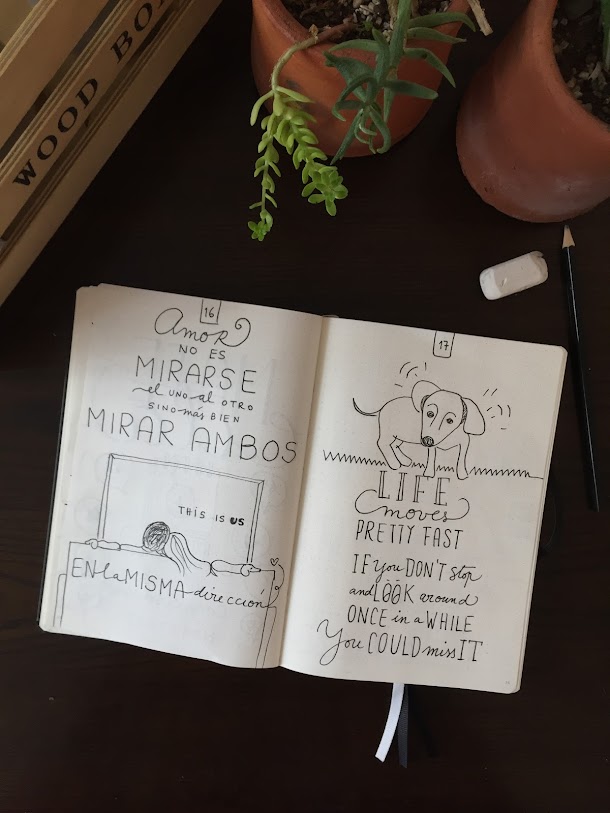 WOOD BO
16
Amor
NO ES
MIRARSE
el UNO al OTRO
SINO más BIEN
MIRAR AMBOS
THIS IS US
EN la MISMA dirección
17
LIFE
moves
PRETTY FAST
IF you DON'T stop
and LOOK around
ONCE in a WHILE
You COULD miss IT